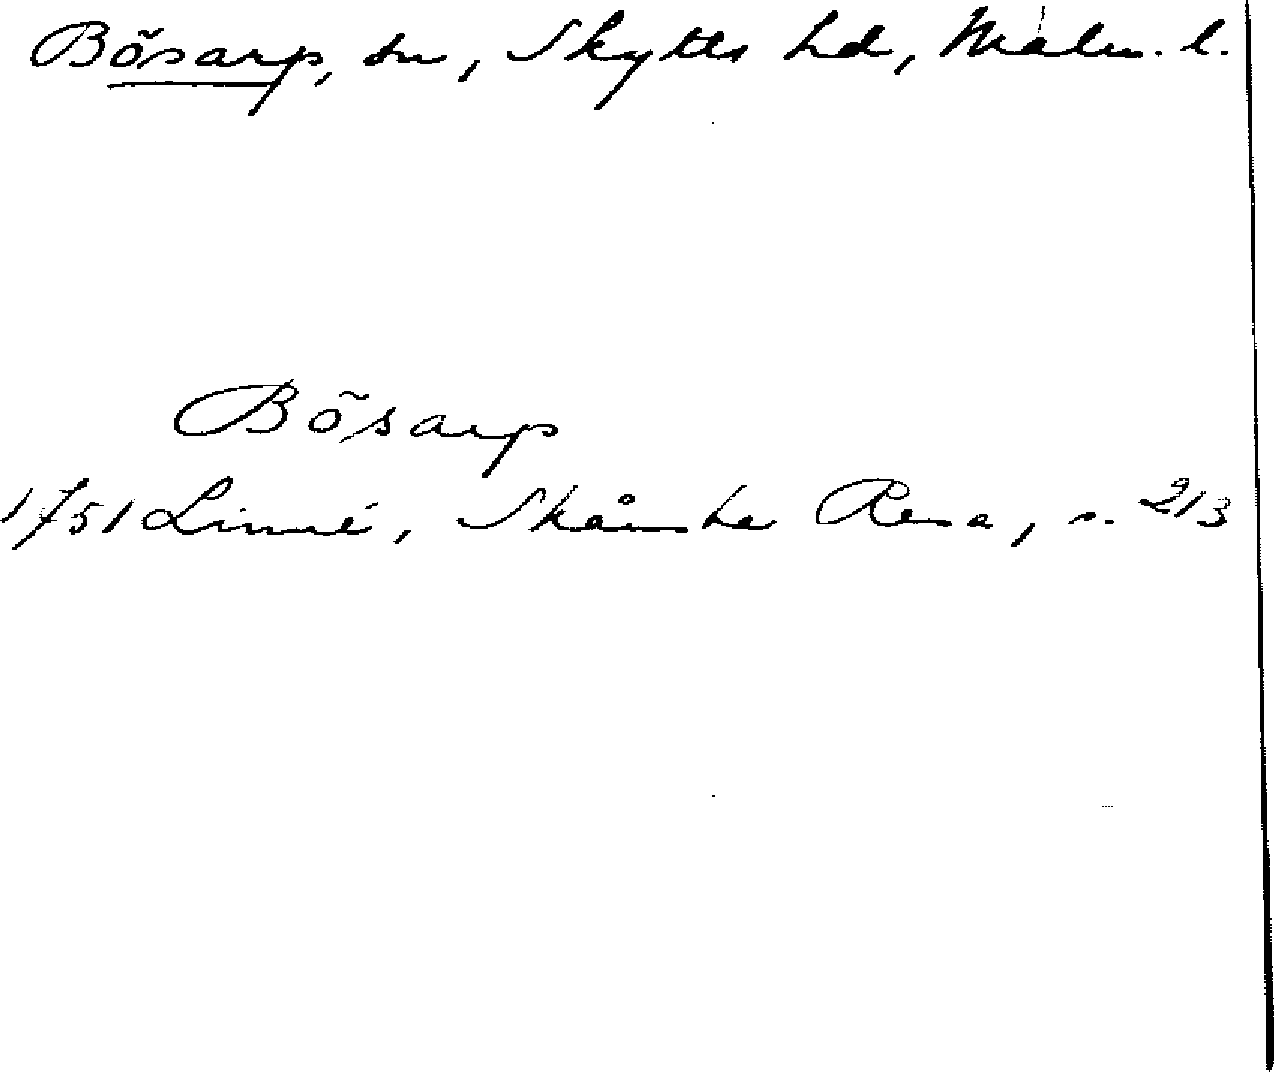 Bösarp, sn, Skytts hd, Malm. l.
Bösarp
1751 Linné, Skånska Resa, s. 213